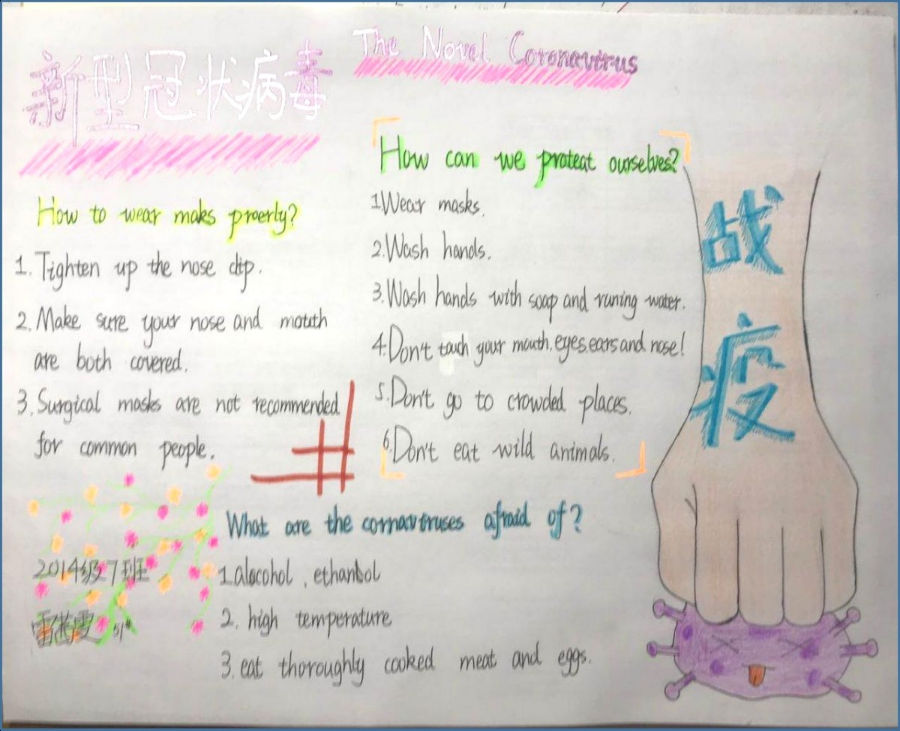 新型冠状病毒
The Novel Coronavirus
How to wear maks proerly?
1. Tighten up the nose clip.
2. Make sure your nose and mouth
are both covered.
3. Surgical masks are not recommended
for common people.
How can we proteat ourselves?
1 Wear masks.
2. Wash hands.
3. Wash hands with soap and runing water.
4. Don't touch your mouth, eyes, ears and nose!
5. Don't go to crowded places.
6. Don't eat wild animals.
战
疫
What are the cornaviruses afraid of?
1. alocohol, ethanbol
2. high temperature
3. eat thoroughly cooked meat and eggs.
2014级7班